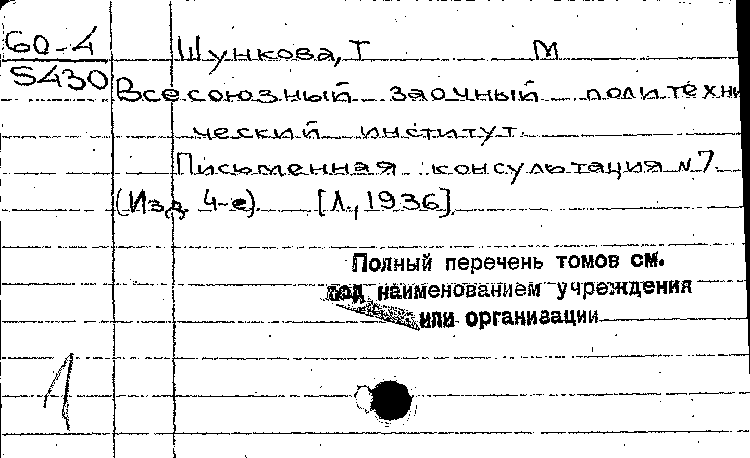 60-4 Шункова, Т М
5430 Всесоюзный заочный политехни
ческий институт.
Письменная консультация №7.
(Изд 4-е). [Л., 1936].
Полный перечень томов см.
под наименованием учреждения
или организации
1